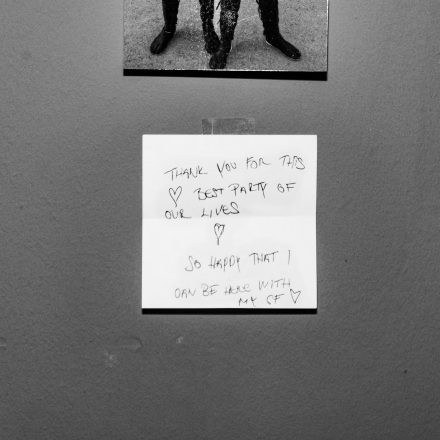 THANK YOU FOR THIS
♡ BEST PARTY OF
OUR LIVES
♡
SO HAPPY THAT I
CAN BE HERE WITH
MY GF ♡